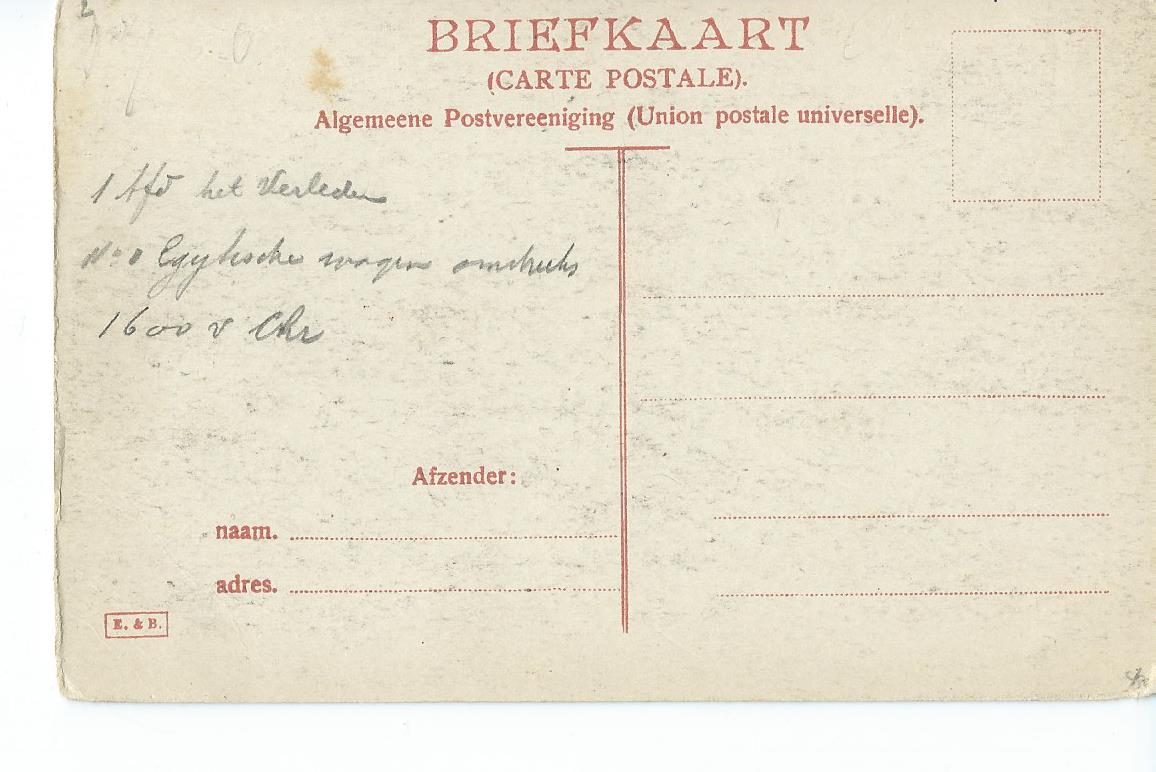 BRIEFKAART
(CARTE POSTALE).
Algemeene Postvereeniging (Union postale universelle).
1 Afd het Verleden
No 1 Egytische wagen omstreeks
1600 v Chr
Afzender:
naam.
adres.
E. & B.